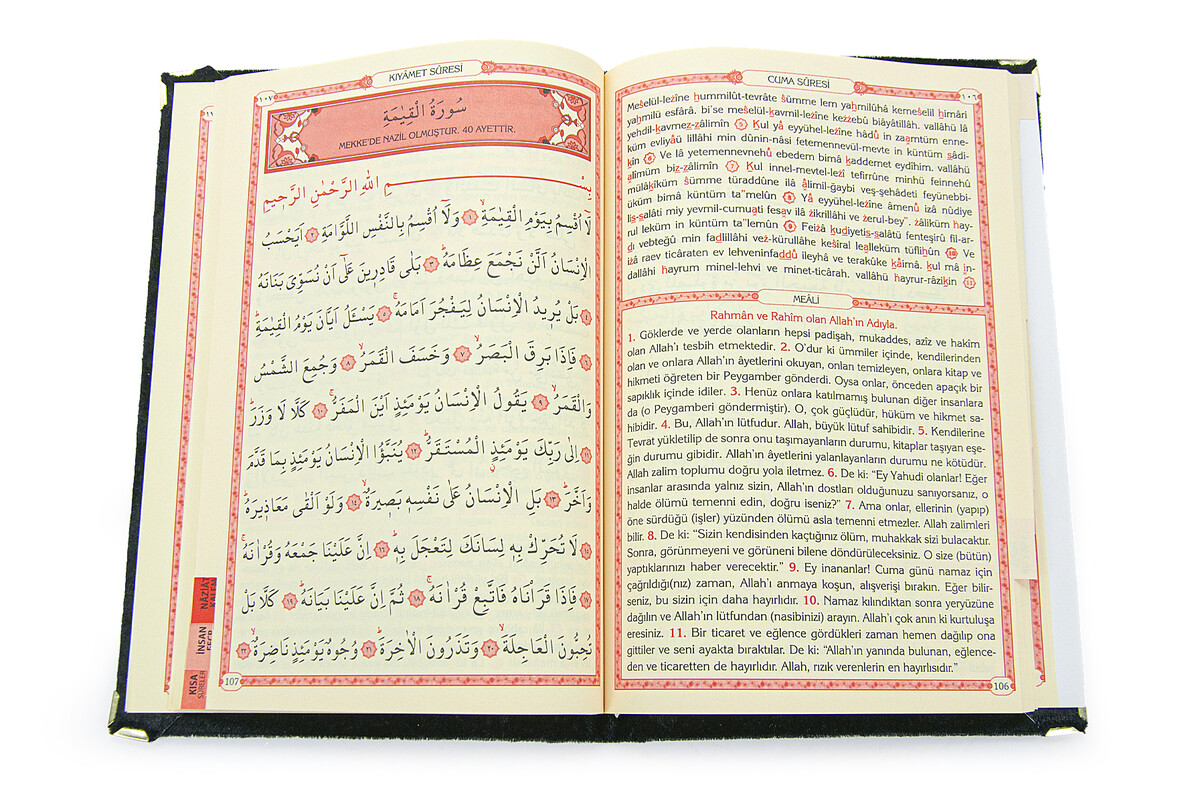 CUMA SÛRESİ
١٠٦
Meŝelül-leẑîne ḣummilût-tevrâte ŝümme lem yaḣmilûhâ kemeŝelil ḣimâri
yaḣmilu esfârâ. bi'se meŝelül-kavmil-leẑîne keẑẑebû biâyâtillâh. vallâhü lâ
yehdil-kavmeż-żâlimîn 5 Kul yâ eyyühel-leẑîne hâdû in zaamtüm enne-
küm evliyâü lillâhi min dûnin-nâsi fetemennevül-mevte in küntüm ṡâdi-
kîn 6 Ve lâ yetemennevnehû ebedem bimâ kaddemet eydîhim. vallâhü
alîmüm biż-żâlimîn 7 Kul innel-mevtel-leẑî tefirrûne minhü feinnehû
mülâkîküm ŝümme türaddûne ilâ âlimil-ğaybi veş-şehâdeti feyünebbi-
üküm bimâ küntüm ta"melûn 8 Yâ eyyühel-leẑîne âmenû iẑâ nûdiye
liṡ-ṡalâti miy yevmil-cumuati fesav ilâ ẑikrillâhi ve ẑerul-bey". ẑâliküm ḣay-
rul leküm in küntüm ta"lemûn 9 Feiẑâ kuḋiyetiṡ-ṡalâtü fenteşirû fil-ar-
ḋı vebteğû min faḋlillâhi veẑ-kürullâhe keŝîral lealleküm tüfliḣûn 10 Ve
iẑâ raev ticâraten ev lehveninfaḋḋû ileyhâ ve terakûke kâimâ. kul mâ in-
dallâhi ḣayrum minel-lehvi ve minet-ticârah. vallâhü ḣayrur-râzikîn 11
MEÂLİ
Rahmân ve Rahîm olan Allah'ın Adıyla.
1. Göklerde ve yerde olanların hepsi padişah, mukaddes, azîz ve hakîm
olan Allah'ı tesbih etmektedir. 2. O'dur ki ümmiler içinde, kendilerinden
olan ve onlara Allah'ın âyetlerini okuyan, onlan temizleyen, onlara kitap ve
hikmeti öğreten bir Peygamber gönderdi. Oysa onlar, önceden apaçık bir
sapıklık içinde idiler. 3. Henüz onlara katılmamış bulunan diğer insanlara
da (o Peygamberi göndermiştir). O, çok güçlüdür, hüküm ve hikmet sa-
hibidir. 4. Bu, Allah'ın lütfudur. Allah, büyük lütuf sahibidir. 5. Kendilerine
Tevrat yükletilip de sonra onu taşımayanların durumu, kitaplar taşıyan eşe-
ğin durumu gibidir. Allah'ın âyetlerini yalanlayanların durumu ne kötüdür.
Allah zalim toplumu doğru yola iletmez. 6. De ki: "Ey Yahudi olanlar! Eğer
insanlar arasında yalnız sizin, Allah'ın dostları olduğunuzu sanıyorsanız, o
halde ölümü temenni edin, doğru iseniz?" 7. Ama onlar, ellerinin (yapıp)
öne sürdüğü (işler) yüzünden ölümü asla temenni etmezler. Allah zalimleri
bilir. 8. De ki: "Sizin kendisinden kaçtığınız ölüm, muhakkak sizi bulacaktır.
Sonra, görünmeyeni ve görüneni bilene döndürüleceksiniz. O size (bütün)
yaptıklarınızı haber verecektir." 9. Ey inananlar! Cuma günü namaz için
çağrıldığı(nız) zaman, Allah'ı anmaya koşun, alışverişi bırakın. Eğer bilir-
seniz, bu sizin için daha hayırlıdır. 10. Namaz kılındıktan sonra yeryüzüne
dağılın ve Allah'ın lütfundan (nasibinizi) arayın. Allah'ı çok anın ki kurtuluşa
eresiniz. 11. Bir ticaret ve eğlence gördükleri zaman hemen dağılıp ona
gittiler ve seni ayakta bıraktılar. De ki: "Allah'ın yanında bulunan, eğlence-
den ve ticaretten de hayırlıdır. Allah, rızık verenlerin en hayırlısıdır."
106
١٠٧
KIYÂMET SÛRESİ
سُورَةُ الْقِيٰمَةِ
MEKKE'DE NAZİL OLMUŞTUR. 40 AYETTİR.
بِسْمِ اللّٰهِ الرَّحْمٰنِ الرَّحِيمِ
لَٓا اُقْسِمُ بِيَوْمِ الْقِيٰمَةِۙ ١ وَلَٓا اُقْسِمُ بِالنَّفْسِ اللَّوَّامَةِ ٢ اَيَحْسَبُ
الْاِنْسَانُ اَلَّنْ نَجْمَعَ عِظَامَهُۜ ٣ بَلٰى قَادِرِينَ عَلٰٓى اَنْ نُسَوِّيَ بَنَانَهُ
٤ بَلْ يُرِيدُ الْاِنْسَانُ لِيَفْجُرَ اَمَامَهُۚ ٥ يَسْـَٔلُ اَيَّانَ يَوْمُ الْقِيٰمَةِۜ
٦ فَاِذَا بَرِقَ الْبَصَرُۙ ٧ وَخَسَفَ الْقَمَرُۙ ٨ وَجُمِعَ الشَّمْسُ
وَالْقَمَرُۙ ٩ يَقُولُ الْاِنْسَانُ يَوْمَئِذٍ اَيْنَ الْمَفَرُّۚ ١٠ كَلَّا لَا وَزَرَۜ
١١ اِلٰى رَبِّكَ يَوْمَئِذٍ الْمُسْتَقَرُّۜ ١٢ يُنَبَّؤُا الْاِنْسَانُ يَوْمَئِذٍ بِمَا قَدَّمَ
وَاَخَّرَۜ ١٣ بَلِ الْاِنْسَانُ عَلٰى نَفْسِهِ بَصِيرَةٌۙ ١٤ وَلَوْ اَلْقٰى مَعَاذِيرَهُۜ
١٥ لَا تُحَرِّكْ بِهِ لِسَانَكَ لِتَعْجَلَ بِهِۜ ١٦ اِنَّ عَلَيْنَا جَمْعَهُ وَقُرْاٰنَهُۚ
١٧ فَاِذَا قَرَاْنَاهُ فَاتَّبِعْ قُرْاٰنَهُۚ ١٨ ثُمَّ اِنَّ عَلَيْنَا بَيَانَهُۜ ١٩ كَلَّا بَلْ
تُحِبُّونَ الْعَاجِلَةَۙ ٢٠ وَتَذَرُونَ الْاٰخِرَةَۜ ٢١ وُجُوهٌ يَوْمَئِذٍ نَاضِرَةٌۙ ٢٢
107
NÂZİÂT
İNSAN
KISA
SÛRELER